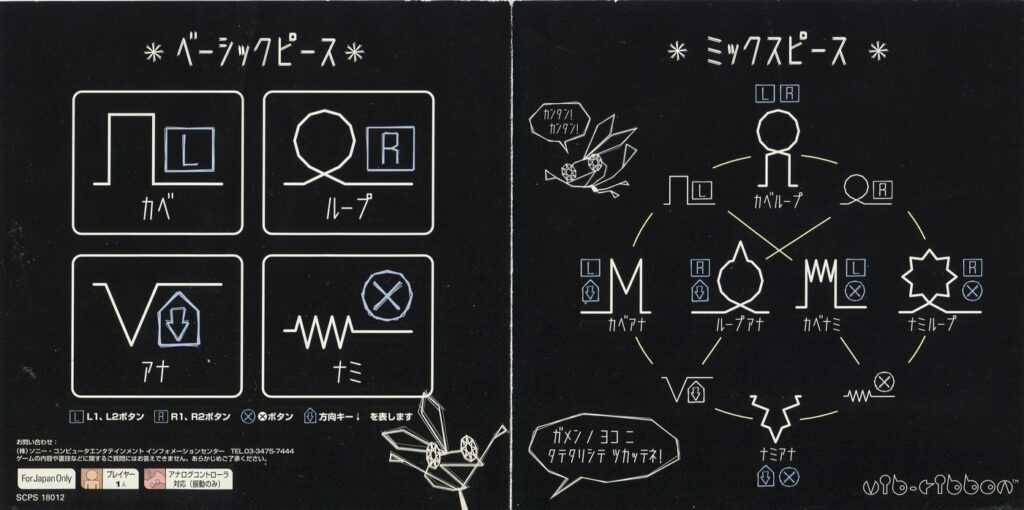 * ベーシックピース *
L
カベ
R
ループ
アナ
ナミ
L L1、L2ボタン R R1、R2ボタン ⊗ ×ボタン 方向キー↓ を表します
お問い合わせ：
(株)ソニー・コンピュータエンタテインメント インフォメーションセンター TEL.03-3475-7444
ゲームの内容や裏技などに関するご質問にはお答えできません。あらかじめご了承ください。
For Japan Only
プレイヤー
1人
アナログコントローラ
対応(振動のみ)
SCPS 18012
* ミックスピース *
L R
カンタン!
カンタン!
L
カベループ
R
L
カベアナ
R
ループアナ
L
カベナミ
R
ナミループ
ナミアナ
ガメン ノ ヨコ ニ
タテタリシテ ツカッテネ!
vib-ribbon™